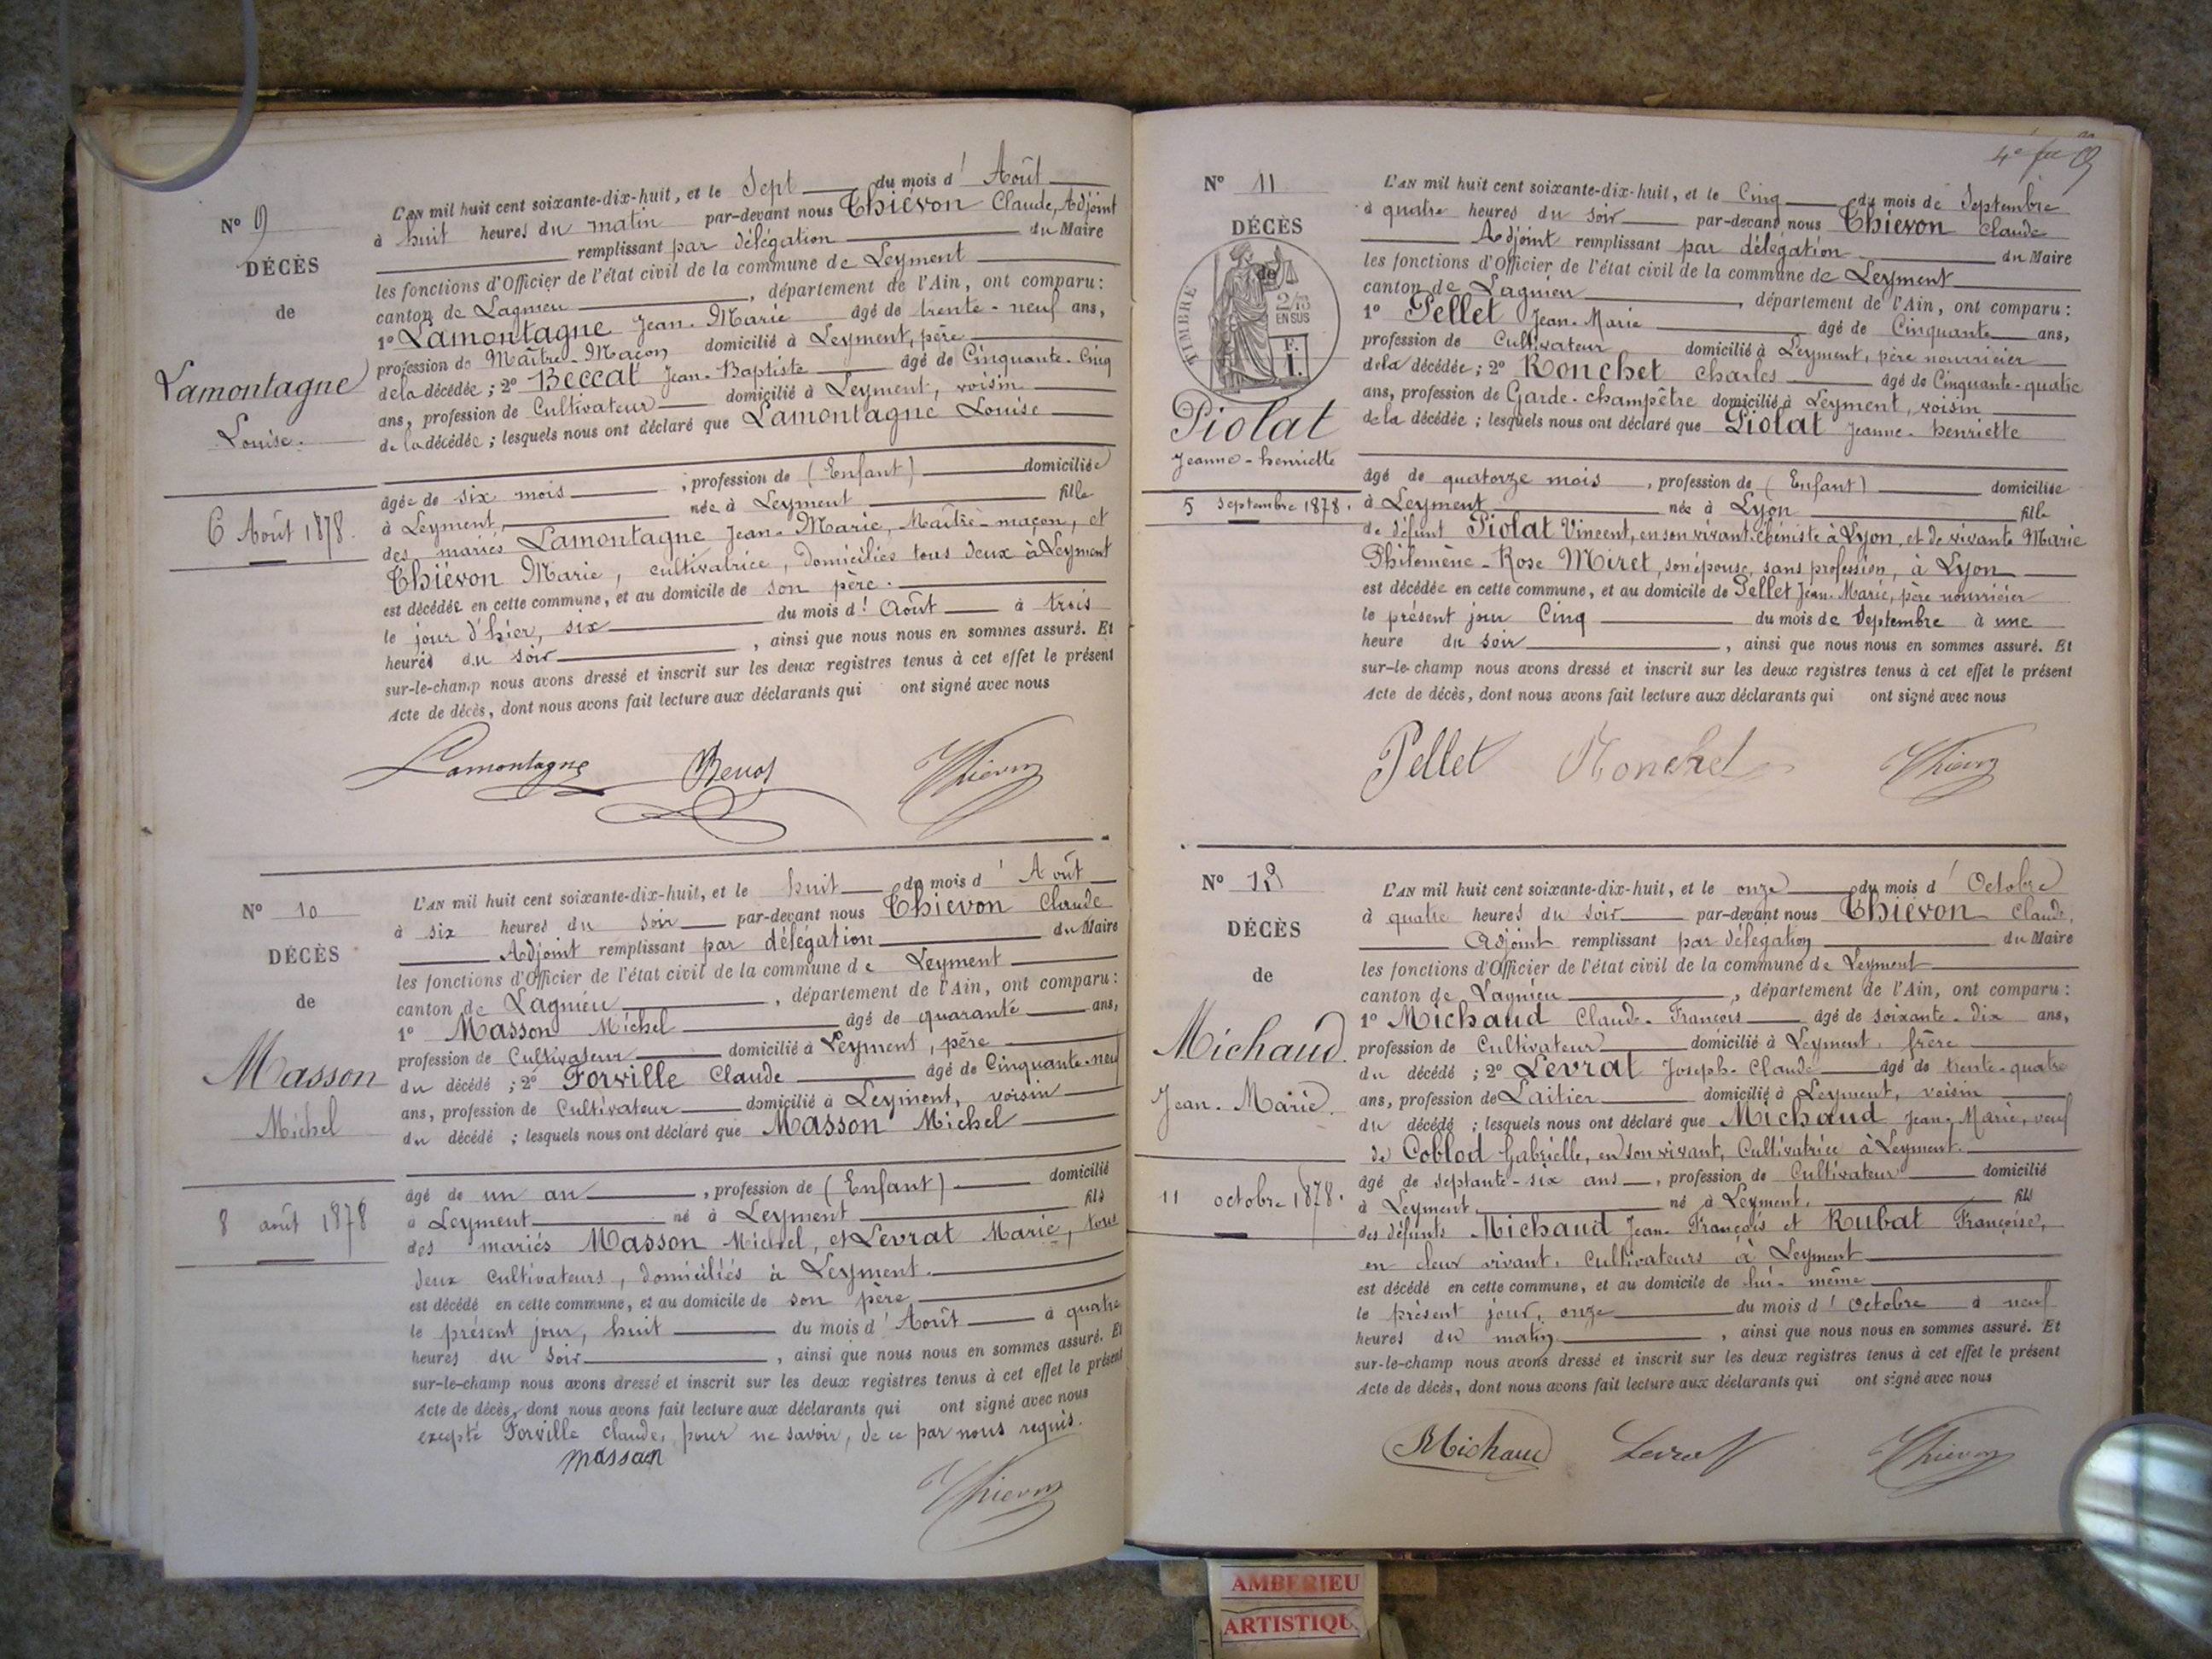 N° 9
DÉCÈS
de
Lamontagne
Louise.
6 Août 1878.
L'AN mil huit cent soixante-dix-huit, et le Sept du mois d' Août
à huit heures du matin par-devant nous Thiévon Claude, Adjoint
remplissant par délégation du Maire
les fonctions d'Officier de l'état civil de la commune de Leyment
canton de Lagnieu, département de l'Ain, ont comparu:
1° Lamontagne Jean-Marie âgé de trente-neuf ans,
profession de Maître-Maçon domicilié à Leyment, père
de la décédée; 2° Beccat Jean-Baptiste âgé de Cinquante-Cinq
ans, profession de Cultivateur domicilié à Leyment, voisin
de la décédée; lesquels nous ont déclaré que Lamontagne Louise
âgée de six mois, profession de (Enfant) domiciliée
à Leyment, née à Leyment fille
des mariés Lamontagne Jean-Marie, Maître-maçon, et
Thiévon Marie, cultivatrice, domiciliés tous deux à Leyment
est décédée en cette commune, et au domicile de son père.
le jour d'hier, six du mois d' Août à trois
heures du soir, ainsi que nous nous en sommes assuré. Et
sur-le-champ nous avons dressé et inscrit sur les deux registres tenus à cet effet le présent
Acte de décès, dont nous avons fait lecture aux déclarants qui ont signé avec nous
Lamontagne Thievon
N° 10
DÉCÈS
de
Masson
Michel
8 août 1878
L'AN mil huit cent soixante-dix-huit, et le huit du mois d' Août
à six heures du soir par-devant nous Thievon Claude
Adjoint remplissant par délégation du Maire
les fonctions d'Officier de l'état civil de la commune de Leyment
canton de Lagnieu, département de l'Ain, ont comparu:
1° Masson Michel âgé de quarante ans,
profession de Cultivateur domicilié à Leyment, père
du décédé; 2° Forville Claude âgé de Cinquante-neuf
ans, profession de Cultivateur domicilié à Leyment, voisin
du décédé; lesquels nous ont déclaré que Masson Michel
âgé de un an, profession de (Enfant) domicilié
à Leyment né à Leyment fils
des mariés Masson Michel, et Levrat Marie, tous
deux cultivateurs, domiciliés à Leyment.
est décédé en cette commune, et au domicile de son père
le présent jour, huit du mois d' Août à quatre
heures du soir, ainsi que nous nous en sommes assuré. Et
sur-le-champ nous avons dressé et inscrit sur les deux registres tenus à cet effet le présent
Acte de décès, dont nous avons fait lecture aux déclarants qui ont signé avec nous
excepté Forville Claude, pour ne savoir, de ce par nous requis.
massan
Thievon
N° 11
DÉCÈS
de
TIMBRE
2/10
EN SUS
F.
1.
Piolat
Jeanne-henriette
5 Septembre 1878.
L'AN mil huit cent soixante-dix-huit, et le Cinq du mois de Septembre
à quatre heures du soir par-devant nous Thievon Claude
Adjoint remplissant par délégation du Maire
les fonctions d'Officier de l'état civil de la commune de Leyment
canton de Lagnieu, département de l'Ain, ont comparu:
1° Pellet Jean-Marie âgé de Cinquante ans,
profession de Cultivateur domicilié à Leyment, père nourricier
de la décédée; 2° Ronchet Charles âgé de Cinquante-quatre
ans, profession de Garde-champêtre domicilié à Leyment, voisin
de la décédée; lesquels nous ont déclaré que Piolat Jeanne-henriette
âgé de quatorze mois, profession de (Enfant) domiciliée
à Leyment née à Lyon fille
de défunt Piolat Vincent, en son vivant ébéniste à Lyon, et de vivante Marie
Philomène-Rose Miret, son épouse, sans profession, à Lyon
est décédée en cette commune, et au domicile de Pellet Jean-Marie, père nourricier
le présent jour Cinq du mois de Septembre à une
heure du soir, ainsi que nous nous en sommes assuré. Et
sur-le-champ nous avons dressé et inscrit sur les deux registres tenus à cet effet le présent
Acte de décès, dont nous avons fait lecture aux déclarants qui ont signé avec nous
Pellet Ronchet Thievon
N° 12
DÉCÈS
de
Michaud.
Jean-Marie.
11 octobre 1878.
L'AN mil huit cent soixante-dix-huit, et le onze du mois d' Octobre
à quatre heures du soir par-devant nous Thiévon Claude,
Adjoint remplissant par délégation du Maire
les fonctions d'Officier de l'état civil de la commune de Leyment
canton de Lagnieu, département de l'Ain, ont comparu:
1° Michaud Claude-François âgé de soixante-dix ans,
profession de Cultivateur domicilié à Leyment, frère
du décédé; 2° Levrat Joseph-Claude âgé de trente-quatre
ans, profession de Laitier domicilié à Leyment, voisin
du décédé; lesquels nous ont déclaré que Michaud Jean-Marie, veuf
de Coblod Gabrielle, en son vivant, Cultivatrice à Leyment.
âgé de septante-six ans, profession de Cultivateur domicilié
à Leyment, né à Leyment, fils
des défunts Michaud Jean-François et Rubat Françoise,
en leur vivant, Cultivateurs à Leyment
est décédé en cette commune, et au domicile de lui-même
le présent jour, onze du mois d' Octobre à neuf
heures du matin, ainsi que nous nous en sommes assuré. Et
sur-le-champ nous avons dressé et inscrit sur les deux registres tenus à cet effet le présent
Acte de décès, dont nous avons fait lecture aux déclarants qui ont signé avec nous
Michaud Levrat Thievon
AMBERIEU
ARTISTIQU